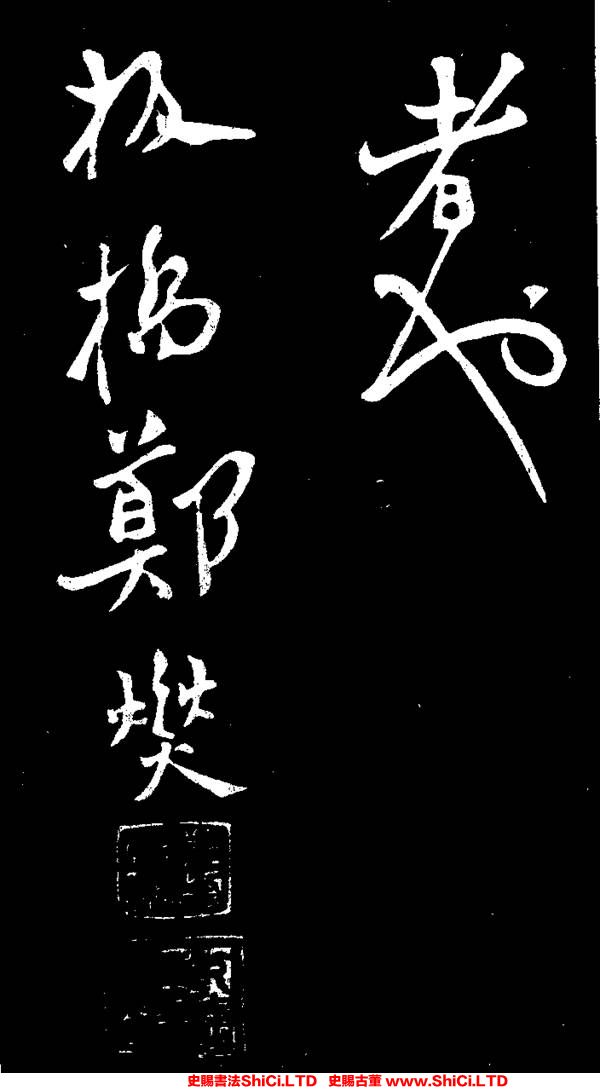 者也
板橋鄭燮
史賜書法ShiCi.LTD 史賜古董 www.ShiCi.LTD